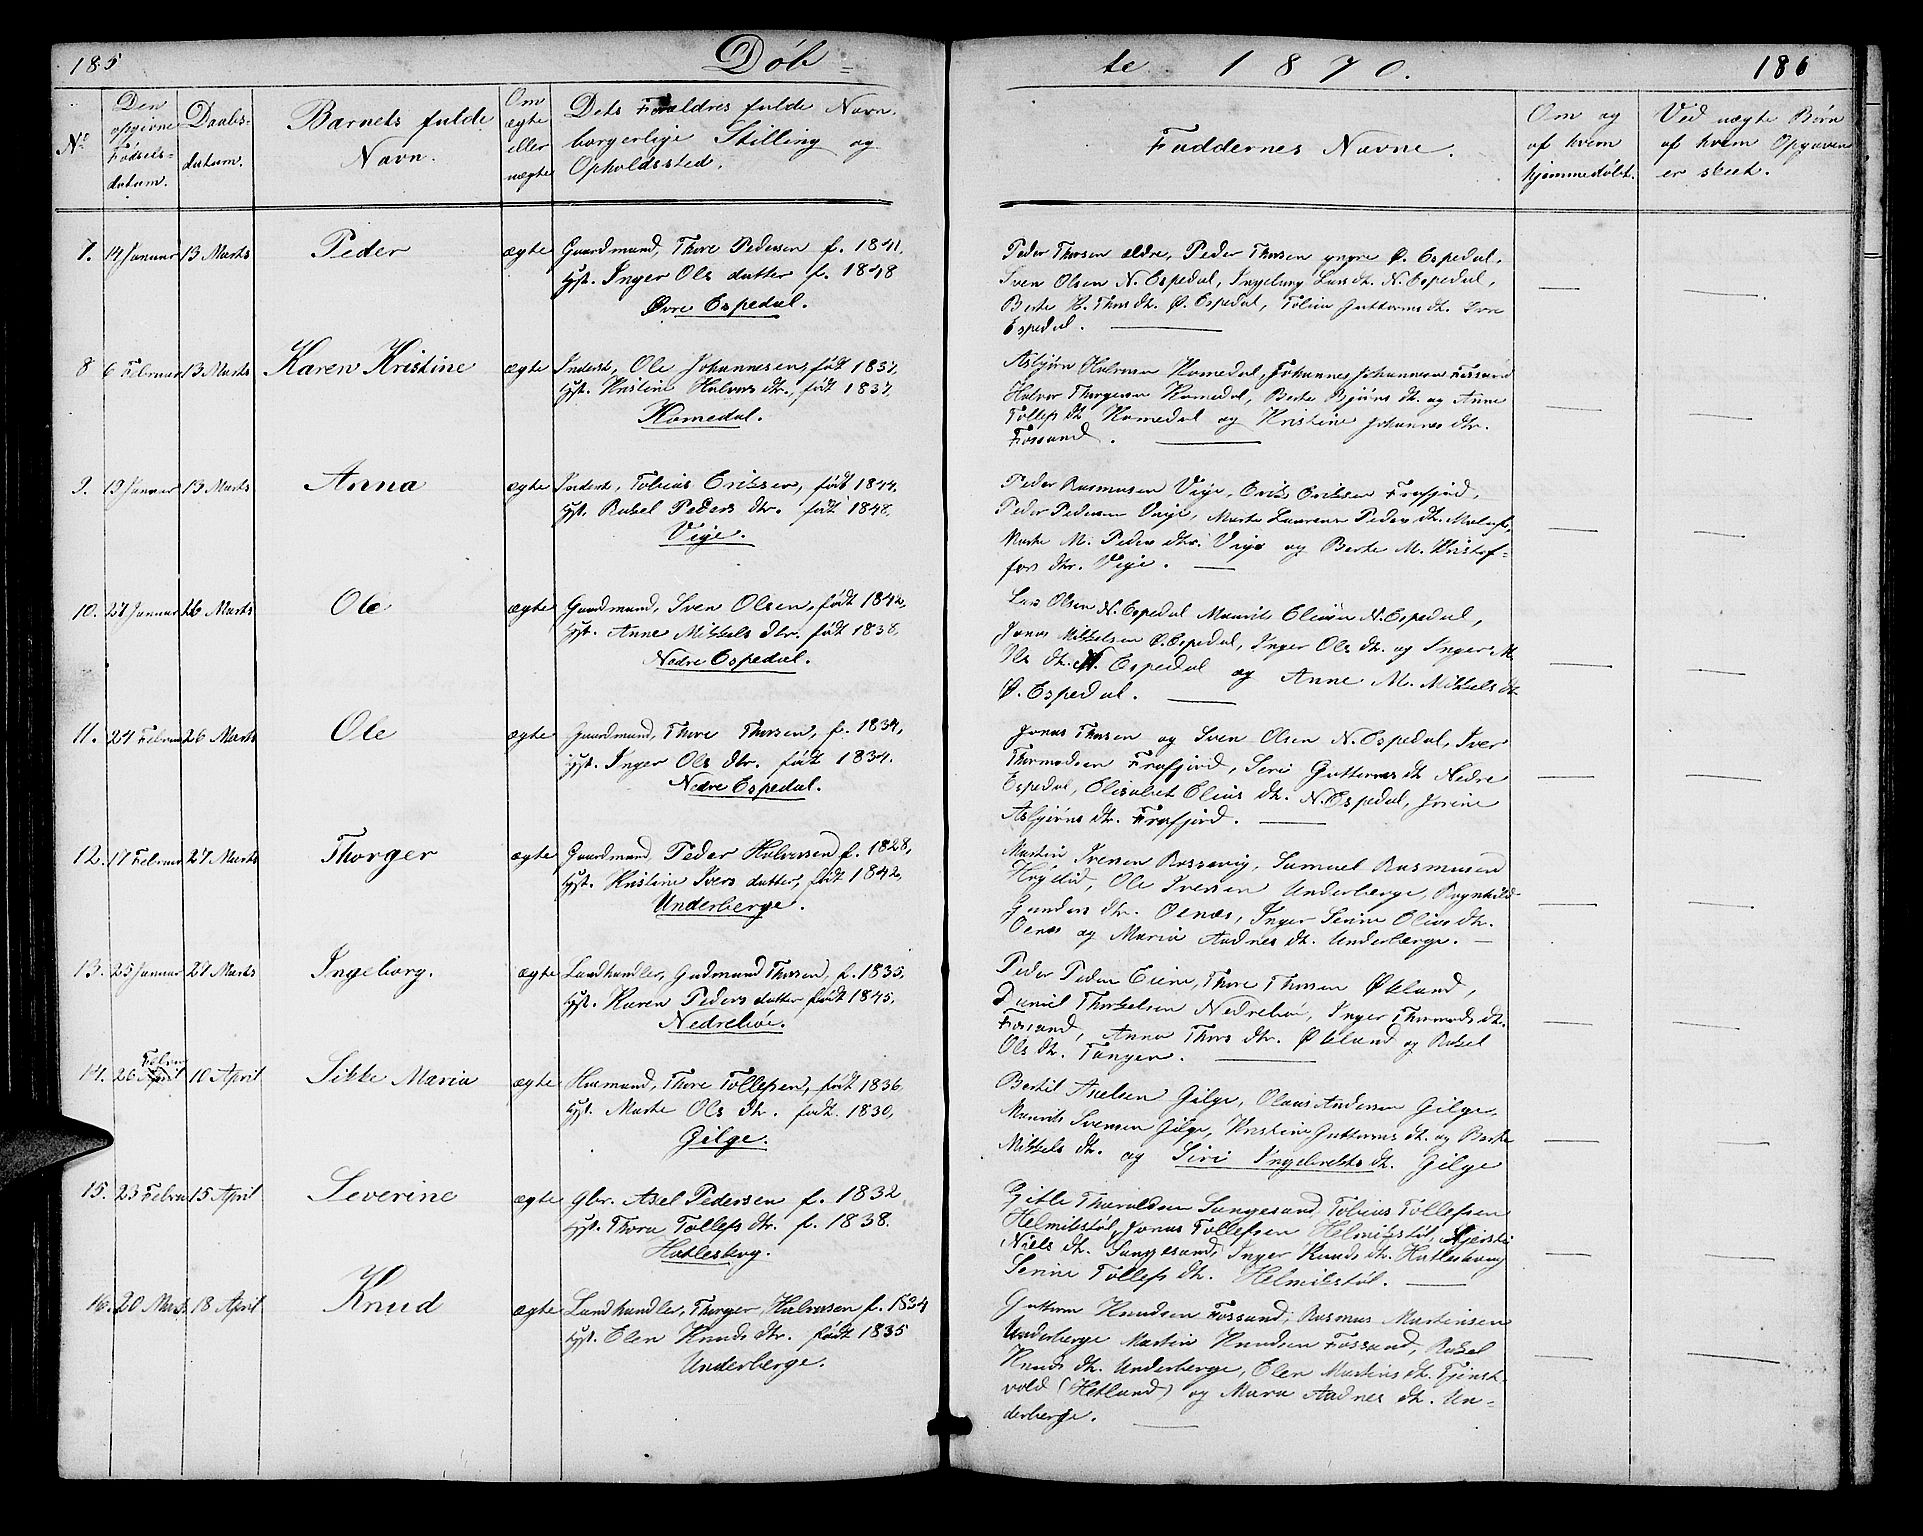 185
Døb-
te 1870.
186
No
Den opgivne Fødsels-datum.
Daabs-datum.
Barnets fulde Navn.
Om ægte eller uægte
Dets Forældres fulde Navn. borgerlige Stilling og Opholdssted.
Faddernes Navne.
Om og af hvem hjemmedøbt.
Ved uægte Børn af hvem Opgaven er skeet.
7. 14 Januar 13 Marts Peder ægte Gaardmand, Thore Pedersen f. 1841.
Hst. Inger Ols datter f. 1848
Øvre Espedal.
Peder Thorsen ældre, Peder Thorsen yngre Ø. Espedal,
Sven Olsen N. Espedal, Ingeborg Lars dt. N. Espedal,
Berte H. Thors dtr. Ø. Espedal, Tobia Guttorms dt. Øvre
Espedal.
8 6 Februar 13 Marts Karen Kristine ægte Inderst, Ole Johannesen, født 1837,
Hst. Kristine Halvors dtr., født 1837,
Komedal.
Asbjørn Halvorsen Komedal, Johannes Johannesen Fossand
Halvor Thorgersen Komedal, Berte Bjørns dt. og Anne
Tollefs dt. Komedal og Kristine Johannes dtr.
Fossand.
9. 19 Januar 13 Marts Anna ægte Inderst, Tobias Eriksen, født 1844,
Hst. Rakel Peders dtr. født 1848,
Veje.
Peder Rasmusen Veje, Eriks Eriksen Frafjord,
Peder Pedersen Veje, Marte Laurense Peders dt. Molauf,
Marte M. Peders dtr. Veje og Berte M. Kristof-
fers dtr. Veje.
10. 27 Januar 26 Marts Ole ægte Gaardmand, Sven Olsen, født 1842,
Hst. Anne Mikkels dtr. født 1838,
Nedre Espedal.
Lars Olsen N. Espedal Maurits Eliasen N. Espedal,
Jonas Mikkelsen Ø. Espedal, Inger Ols dt. og Inger M.
Ols dt. N. Espedal og Anne M. Mikkels dt.
Ø. Espedal.
11. 24 Februar 26 Marts Ole ægte Gaardmand, Thore Thorsen, f. 1834,
Hst. Inger Ols dtr. født 1834.
Nedre Espedal.
Jonas Thorsen og Sven Olsen N. Espedal, Iver
Thormodsen Frafjord, Seri Guttorms dt. Nedre
Espedal, Elisabet Elias dt. N. Espedal, Jorine
Asbjørns dt. Frafjord.
12. 17 Februar 27 Marts Thorger ægte Gaardmand, Peder Halvorsen f. 1828,
Hst. Kristine Ivers datter, født 1842,
Underberge.
Martin Iversen Rossavig, Samuel Rasmusen
Høgelid, Ole Iversen Underberge, Ragnhild
Gunders dtr. Oenæs, Inger Serine Elias dt.
Oenæs og Maria Aadnes dt. Underberge.
13. 25 Januar 27 Marts Ingeborg. ægte Landhandler, Gudmund Thorsen, f. 1835,
Hst. Karen Peders datter født 1845,
Nedrebø.
Peder Pedersen Eiene, Thore Thorsen Økland,
Daniel Thorkelsen Nedrebø, Inger Thormods dt.
Fossand, Anna Thors dtr. Økland og Rakel
Ols dt. Tangen.
14. 26 April Februar 10 April Sikke Maria ægte Husmand, Thore Tollefsen, født 1836
Hst. Marte Ols dtr. født 1830,
Gilge.
Bertil Axelsen Gilge, Olaus Andersen Gilge,
Maurits Svensen Gilge, Kristine Guttorms dt. og Berte
Mikkels dt. og Siri Ingebrets dt. Gilge
15. 23 Februar 15 April Severine ægte Gbr. Axel Pedersen f. 1832
Hst. Thora Tollefs dtr. f. 1838.
Hatleskog.
Gitle Thoraldsen Sangesand Tobias Tollefsen
Helmikstøl, Jonas Tollefsen Helmikstøl, Kjersti
Niels dt. Sangesand, Inger Knuds dt. Hatleskog
Serine Tollefs dt. Helmikstøl.
16. 20 Marts 18 April Knud ægte Landhandler, Thorger Halvorsen f. 1834
Hst. Elen Knuds dtr. født 1835
Underberge.
Guttorm Knudsen Fossand, Rasmus Martinsen
Underberge Martin Knudsen Fossand, Rakel
Knuds dt. Underberge, Elen Martins dt. Tjenst-
vold (Hetland) og Mara Aadnes dt. Un-
derberge.